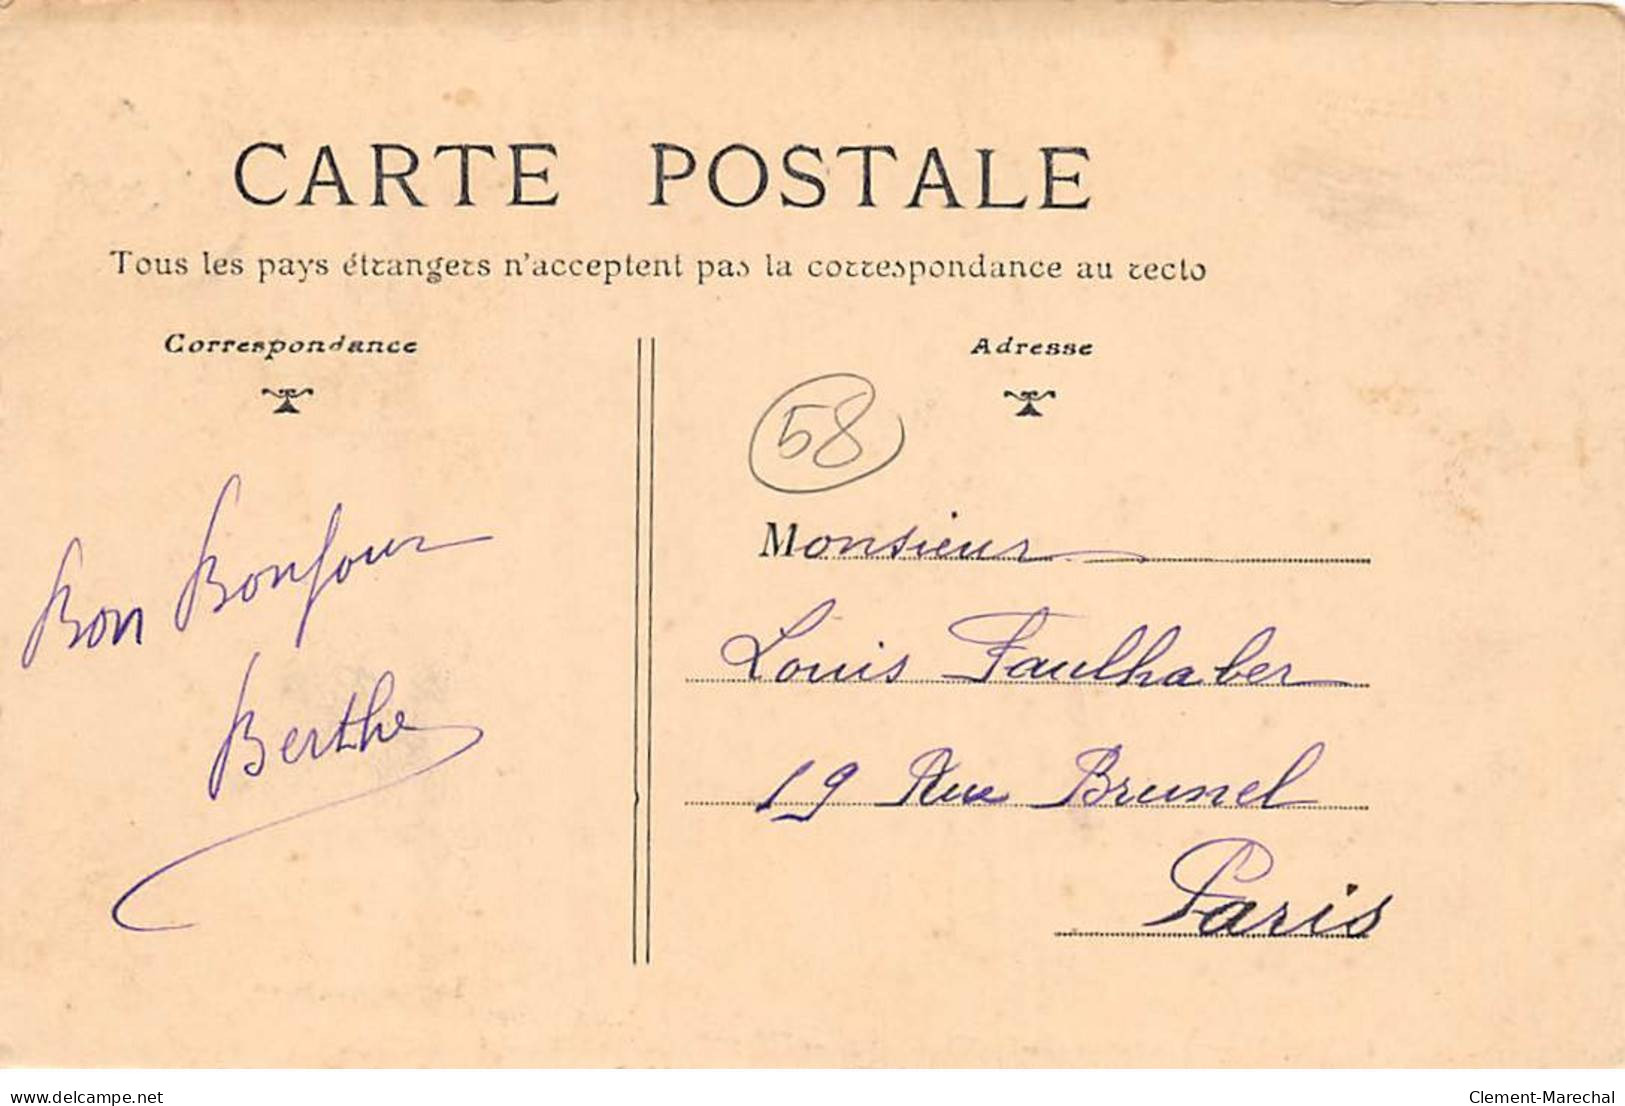 CARTE POSTALE
Tous les pays étrangers n'acceptent pas la correspondance au recto
Correspondance
Adresse
58
Bon Bonjour
Berthe
Monsieur
Louis Faulhaber
19 Rue Brunel
Paris
delcampe.net
Clement-Marechal